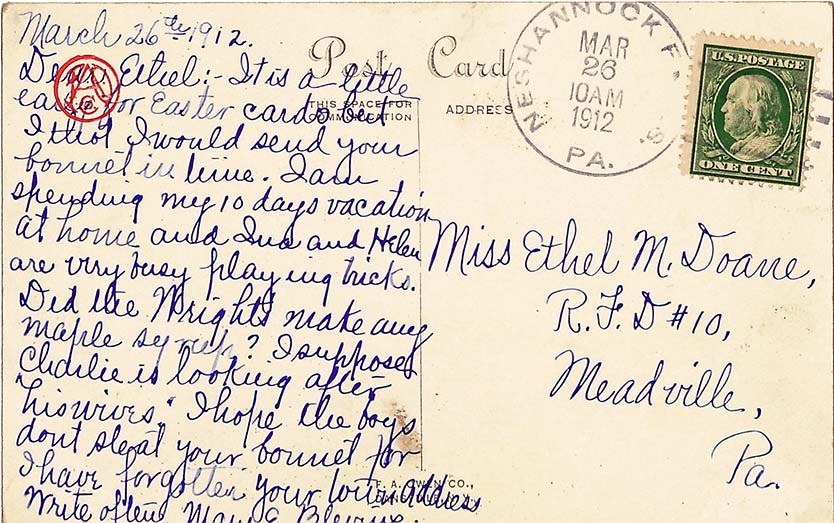 March 26th 1912.
Dear Ethel:- It is a little
early for Easter cards but
I thot I would send your
bonnet in time. I am
spending my 10 days vacation
at home and Ina and Helen
are very busy playing tricks.
Did the Wrights make any
maple syrup? I suppose
Charlie is looking after
"his wives." I hope the boys
dont steal your bonnet for
I have forgotten your town address
Write often Mary E.
Post Card
THIS SPACE FOR
COMMUNICATION
ADDRESS
NESHANNOCK F
MAR
26
10AM
1912
PA.
U.S. POSTAGE
ONE CENT
Miss Ethel M. Doane,
R.F.D #10,
Meadville,
Pa.
F. A. OWEN CO.,
DANSVILLE, N.Y.